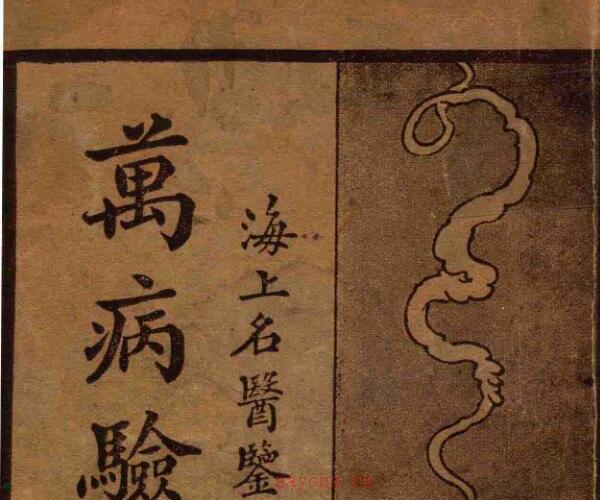 海上名醫鑒
萬病驗